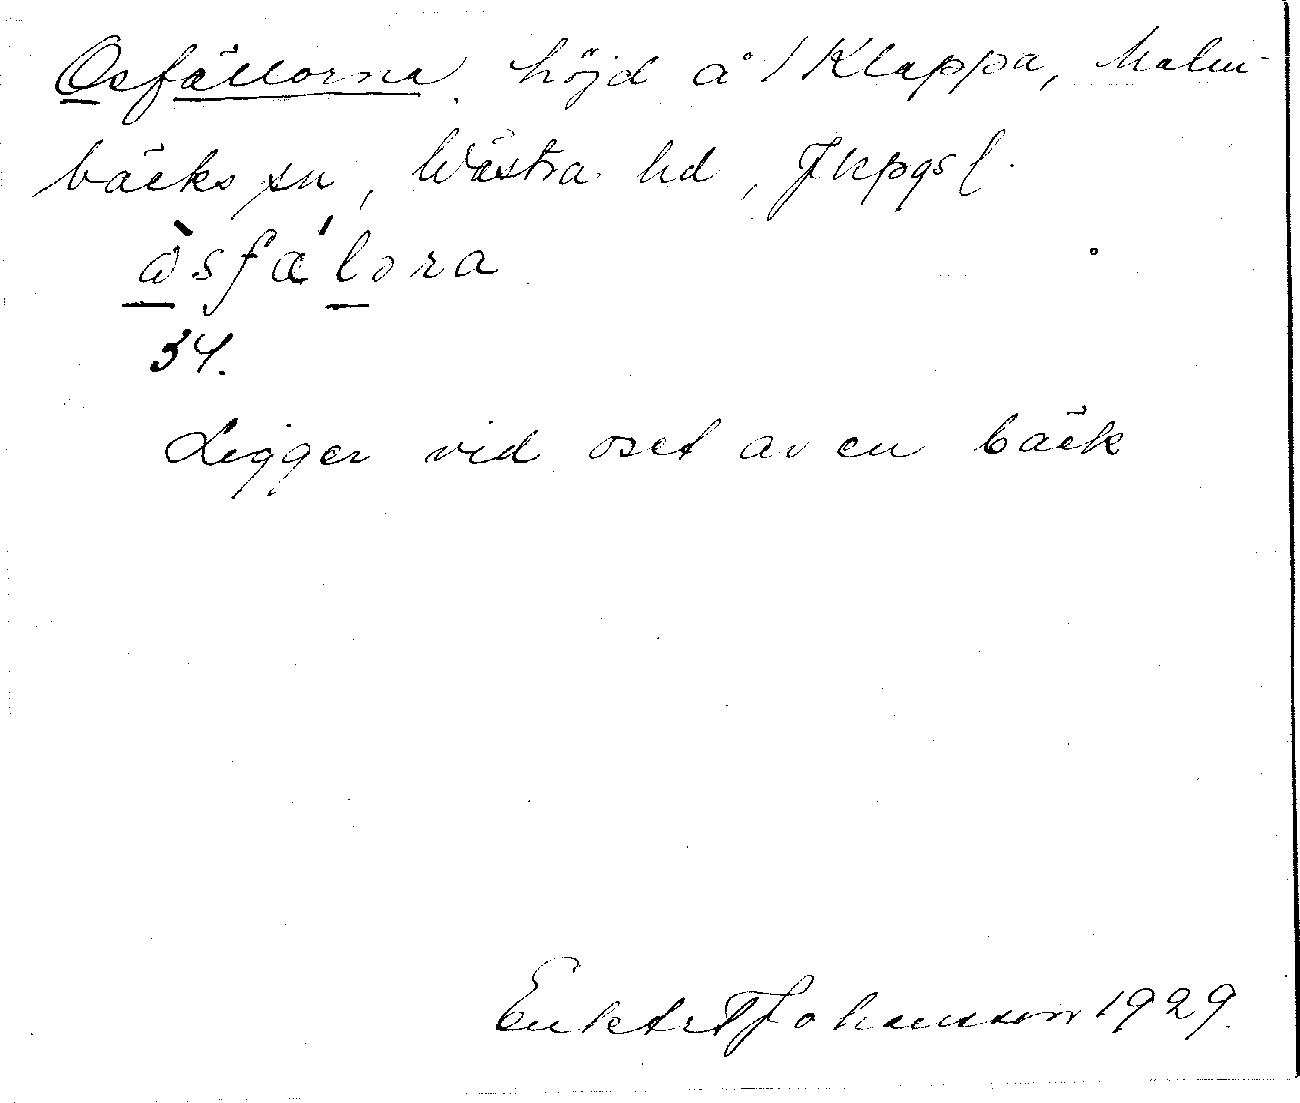 Osfällorna höjd å / Klappa, Malm-
bäcks sn, Västra hd, Jkpgs l.
ò̱sfæ´ḻɔra
34.
Ligger vid oset av en bäck
Enktr T Johansson 1929.